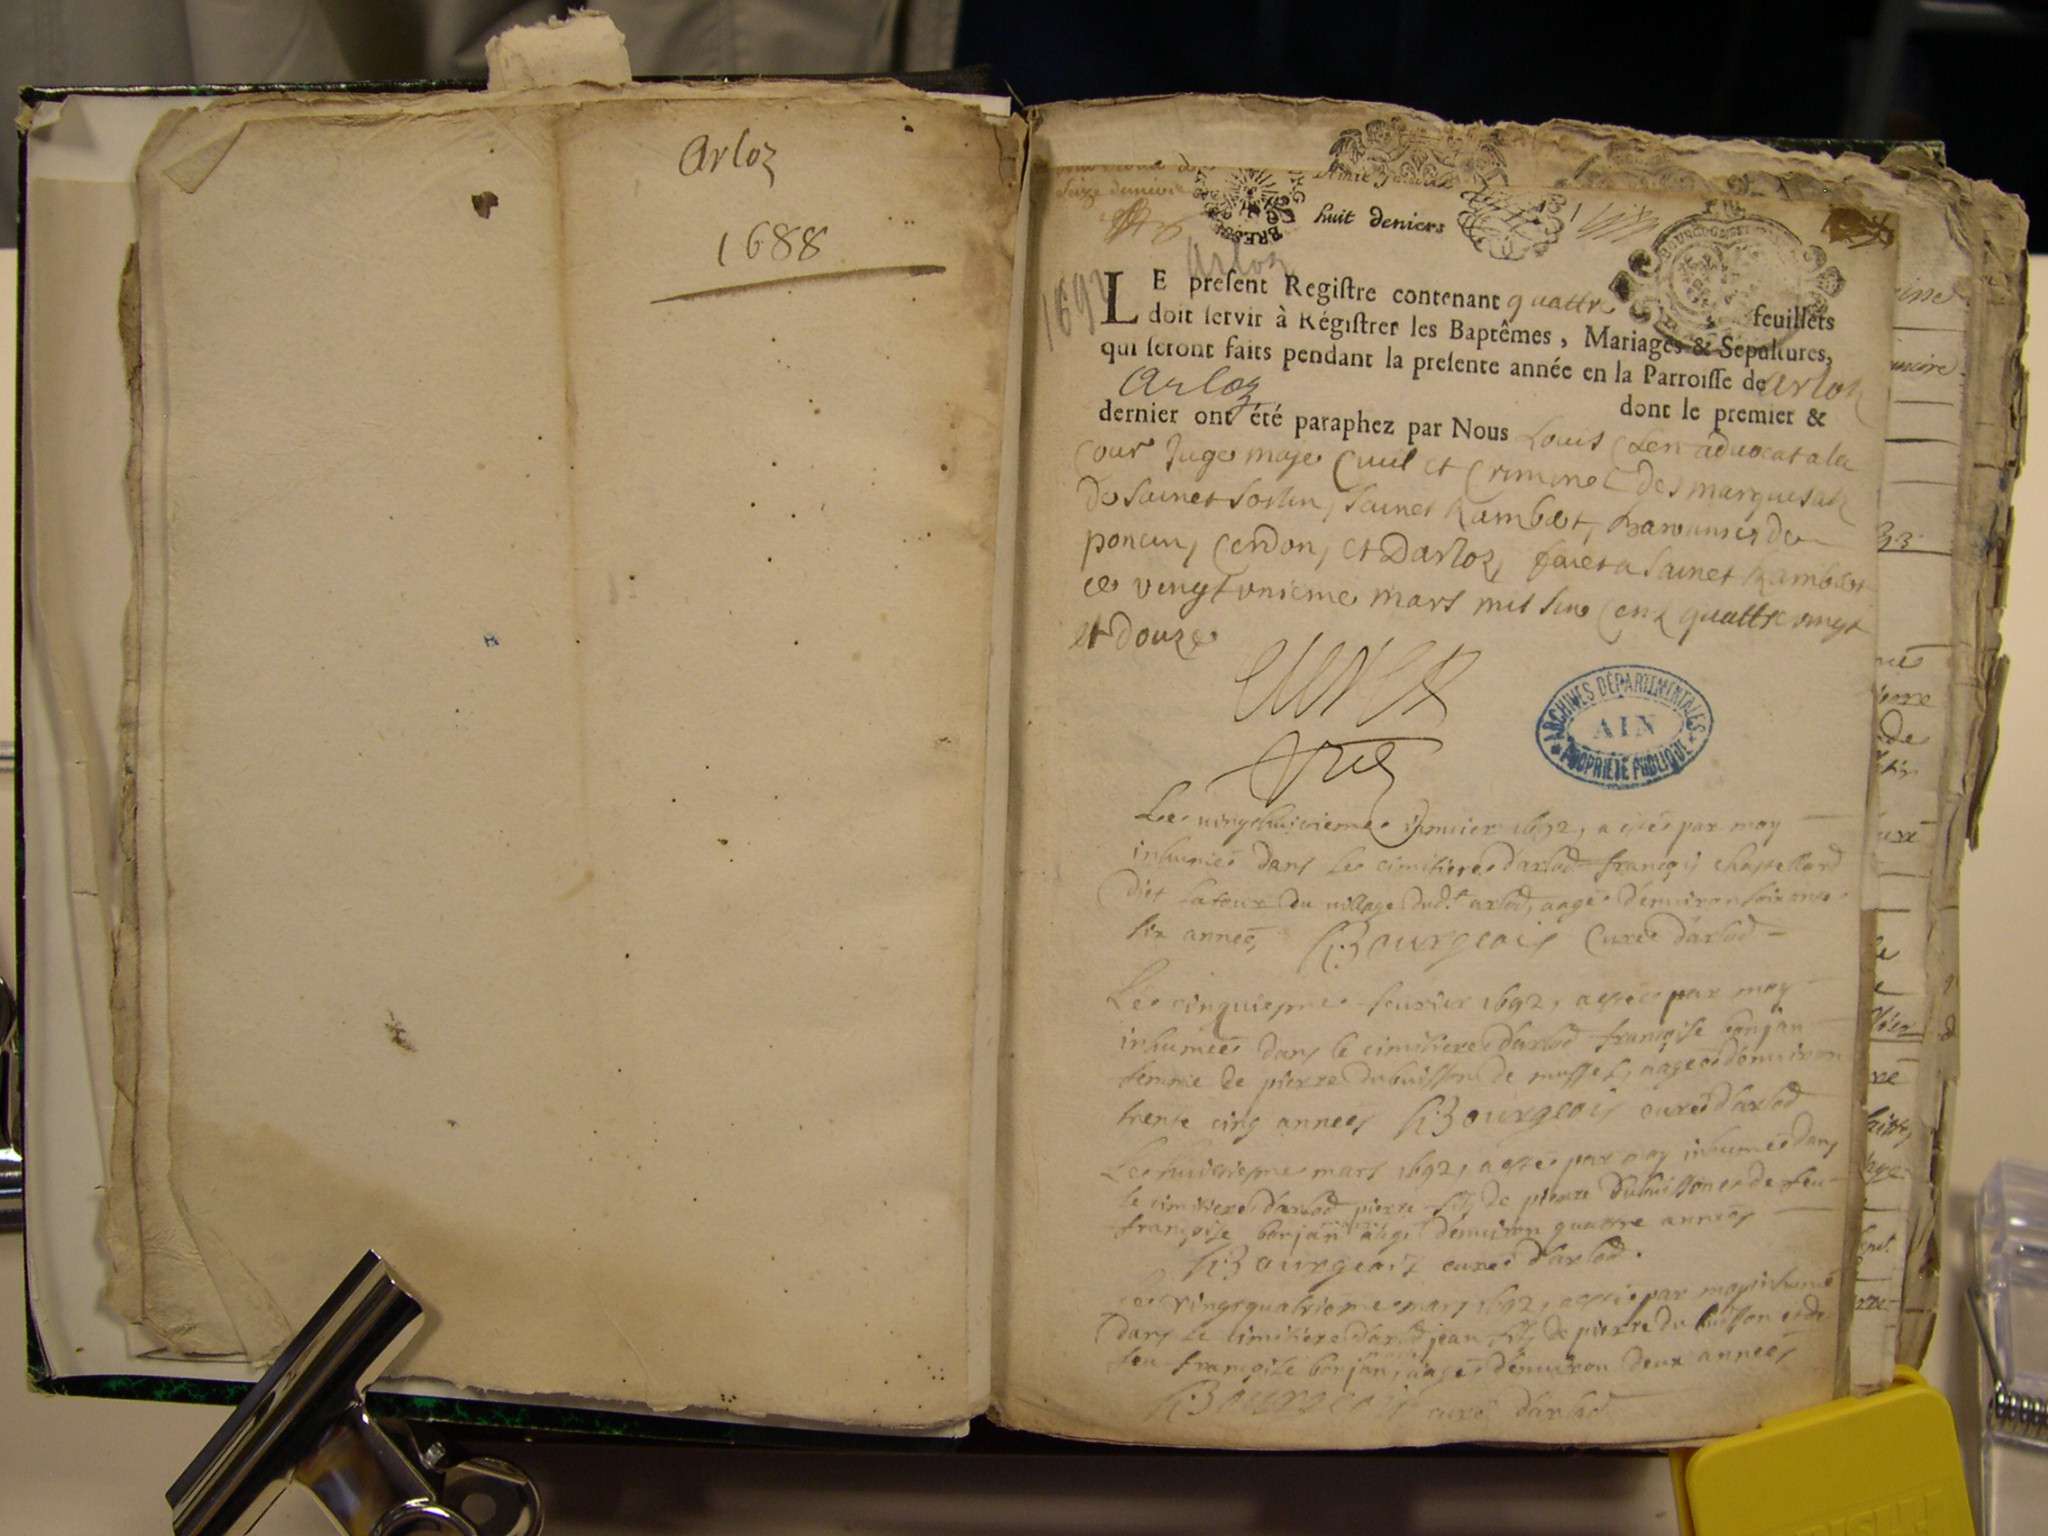 Arloz
1688
seize deniers
BRES
huit deniers
Arloz
1692
LE present Registre contenant quattre feuillets
doit servir à Régistrer les Baptêmes, Mariages & Sepultures,
qui seront faits pendant la presente année en la Parroisse de Arloz
Arloz dont le premier &
dernier ont été paraphez par Nous Louis advocat a la
Cour Juge maje Civil et Criminel des marquisatz
de Sainct Sorlin, Sainct Rambert, baronnies de
poncin, Cerdon, et Darloz, faict a Sainct Rambert
ce vingt unieme mars mil six cent quattre vingt
et douze
ARCHIVES DÉPARTEMENTALES
AIN
PROPRIÉTÉ PUBLIQUE
Le vingthuictieme Janvier 1692, a esté par moy
inhumée dans le cimitiere d'arlod françois chastellard
dict Latour du village dud.t arlod, aagé d'environ soixante
six années, Bourgeois Curé d'arlod
Le cinquiesme fevrier 1692, a esté par moy
inhumée dans le cimitiere d'arlod françoise bonjan
femme de pierre dubuisson de mussel, aagée d'environ
trente cinq années Bourgeois curé d'arlod
Le huictiesme mars 1692, a esté par moy inhumé dans
le cimitiere d'arlod pierre filz de pierre Dubuisson et de feu
françoise bonjan aagé d'environ quattre années
Bourgeois curé d'arlod.
Le vingtquatrieme mars 1692, a esté par moy inhumé
dans le cimitiere d'arlod jean filz de pierre du buisson et de
feu françoise bonjan, aagé d'environ deux années
Bourgeois curé d'arlod